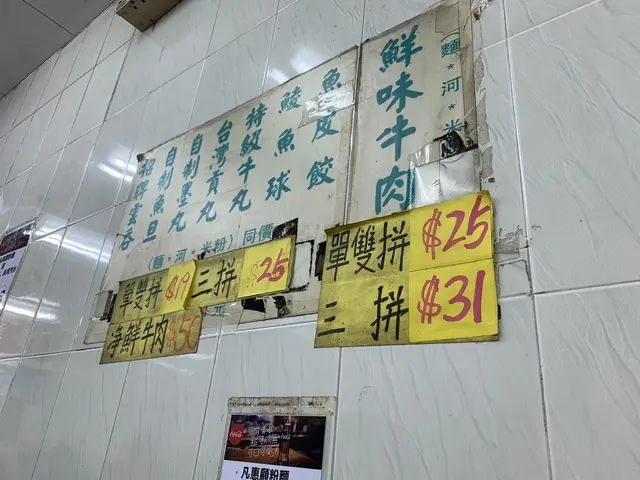 (麵*河*米
鮮味牛肉
單雙拼 $25
三拼 $31
魚皮餃
鯪魚球
特級牛丸
台灣貢丸
自制墨丸
自制魚旦
招牌雲吞
(麵·河·米粉)同價
單雙拼 $19 三拼 $25
净鮮牛肉 $50
凡惠顧粉麵